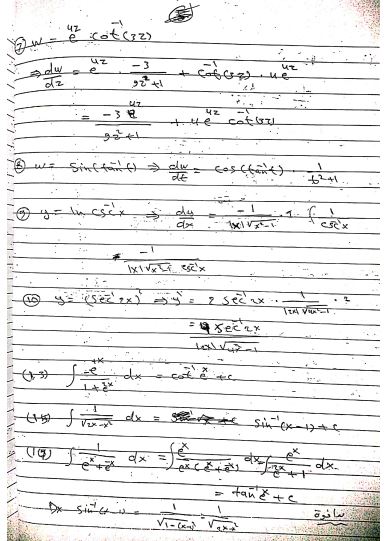 5
⑦ w = e^{4z} cot^{-1}(3z)
⇒ dw/dz = e^{4z} · -3/(9z²+1) + cot^{-1}(3z) · 4e^{4z}
= -3e^{4z}/(9z²+1) + 4e^{4z} cot^{-1}(3z)
⑧ w = sin(tan^{-1}t) ⇒ dw/dt = cos(tan^{-1}t) · 1/(t²+1)
⑨ y = ln csc^{-1}x ⇒ dy/dx = -1/(|x|√(x²-1)) · 1/(csc^{-1}x)
= -1/(|x|√(x²-1) csc^{-1}x)
⑩ y = (sec^{-1}2x)² ⇒ y' = 2 sec^{-1}2x · 1/(|2x|√(4x²-1)) · 2
∫ -e^x/(1+e^{2x}) dx = cot^{-1}e^x + c
∫ 1/√(2x-x²) dx = sin^{-1}(x-1) + c
∫ 1/(e^x+e^{-x}) dx = ∫ e^x/(e^x(e^x+e^{-x})) dx = ∫ e^x/(e^{2x}+1) dx
= tan^{-1}e^x + c